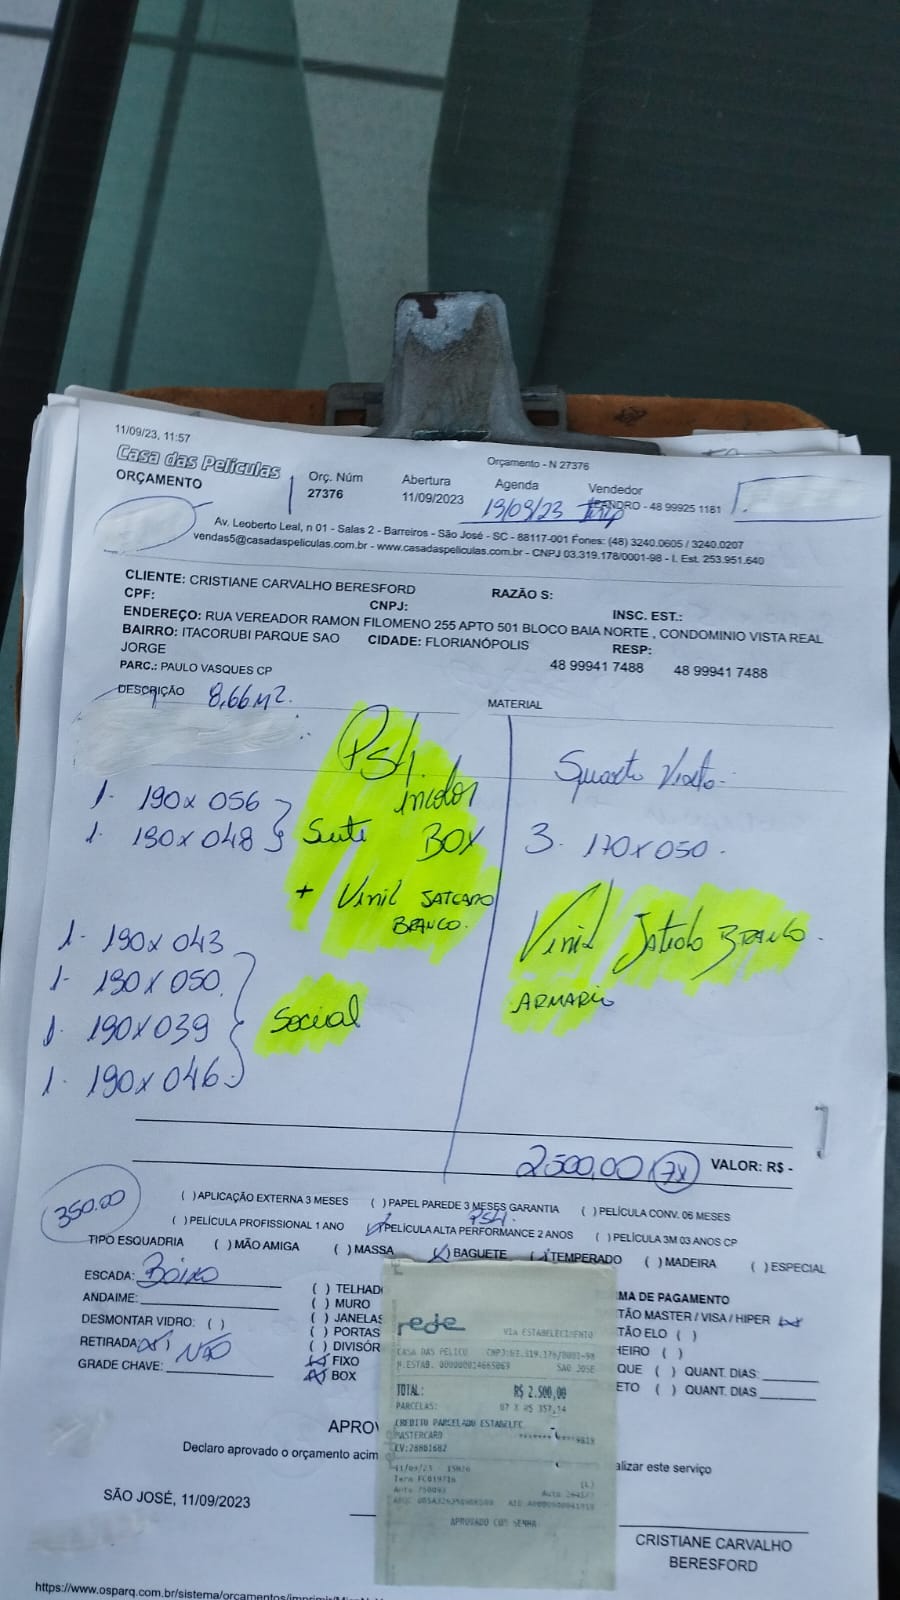 11/09/23, 11:57
Orçamento - N 27376
Casa das Películas
ORÇAMENTO
Orç. Núm
27376
Abertura
11/09/2023
Agenda
19/09/23
Vendedor
LEANDRO - 48 99925 1181
Av. Leoberto Leal, n 01 - Salas 2 - Barreiros - São José - SC - 88117-001 Fones: (48) 3240.0605 / 3240.0207
vendas5@casadaspeliculas.com.br - www.casadaspeliculas.com.br - CNPJ 03.319.178/0001-98 - I. Est. 253.951.640
CLIENTE: CRISTIANE CARVALHO BERESFORD RAZÃO S:
CPF: CNPJ: INSC. EST.:
ENDEREÇO: RUA VEREADOR RAMON FILOMENO 255 APTO 501 BLOCO BAIA NORTE , CONDOMINIO VISTA REAL
BAIRRO: ITACORUBI PARQUE SAO JORGE CIDADE: FLORIANÓPOLIS RESP:
48 99941 7488 48 99941 7488
PARC.: PAULO VASQUES CP
DESCRIÇÃO 8,66M2.
MATERIAL
PS4.
incolor
1- 190 x 056
1. 190 x 048 Suite BOX
+ Vinil JATEADO
BRANCO.
1- 190 x 043
1- 190 x 050
1. 190 x 039 Social
1- 190 x 046
3. 170 x 050.
Vinil Jateado BRANCO.
ARMARIO
2500,00 (7x) VALOR: R$ -
350.00
( ) APLICAÇÃO EXTERNA 3 MESES ( ) PAPEL PAREDE 3 MESES GARANTIA ( ) PELÍCULA CONV. 06 MESES
PS4.
( ) PELÍCULA PROFISSIONAL 1 ANO (x) PELÍCULA ALTA PERFORMANCE 2 ANOS ( ) PELÍCULA 3M 03 ANOS CP
TIPO ESQUADRIA ( ) MÃO AMIGA ( ) MASSA (x) BAGUETE (x) TEMPERADO ( ) MADEIRA ( ) ESPECIAL
ESCADA: Baixo
ANDAIME:
DESMONTAR VIDRO: ( )
RETIRADA (x) NÃO
GRADE CHAVE:
( ) TELHAD
( ) MURO
( ) JANELAS
( ) PORTAS
( ) DIVISÓR
(x) FIXO
(x) BOX
MA DE PAGAMENTO
TÃO MASTER / VISA / HIPER (x)
TÃO ELO ( )
HEIRO ( )
QUE ( ) QUANT. DIAS:
ETO ( ) QUANT. DIAS
rede
VIA ESTABELECIMENTO
CASA DAS PELICU CNPJ:03.319.178/0001-98
N.ESTAB. 000000014665069 SAO JOSE
TOTAL: R$ 2.500,00
PARCELAS: 07 X R$ 357,14
CREDITO PARCELADO ESTABELEC
MASTERCARD
CV:28861682
APROVADO COM SENHA
APROV
Declaro aprovado o orçamento acim
alizar este serviço
SÃO JOSÉ, 11/09/2023
CRISTIANE CARVALHO
BERESFORD